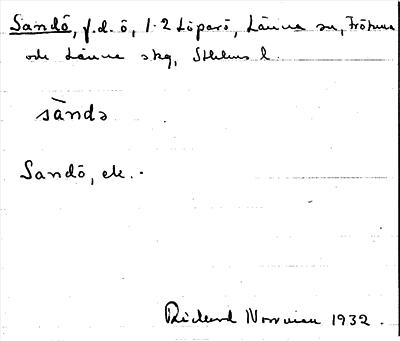 Sandö, f.d. ö, 1.2 Löparö, Länna sn, Frötuna
och Länna skg, Sthlms l.
sàndə
Sandö, ek. -
Rickard 1932.